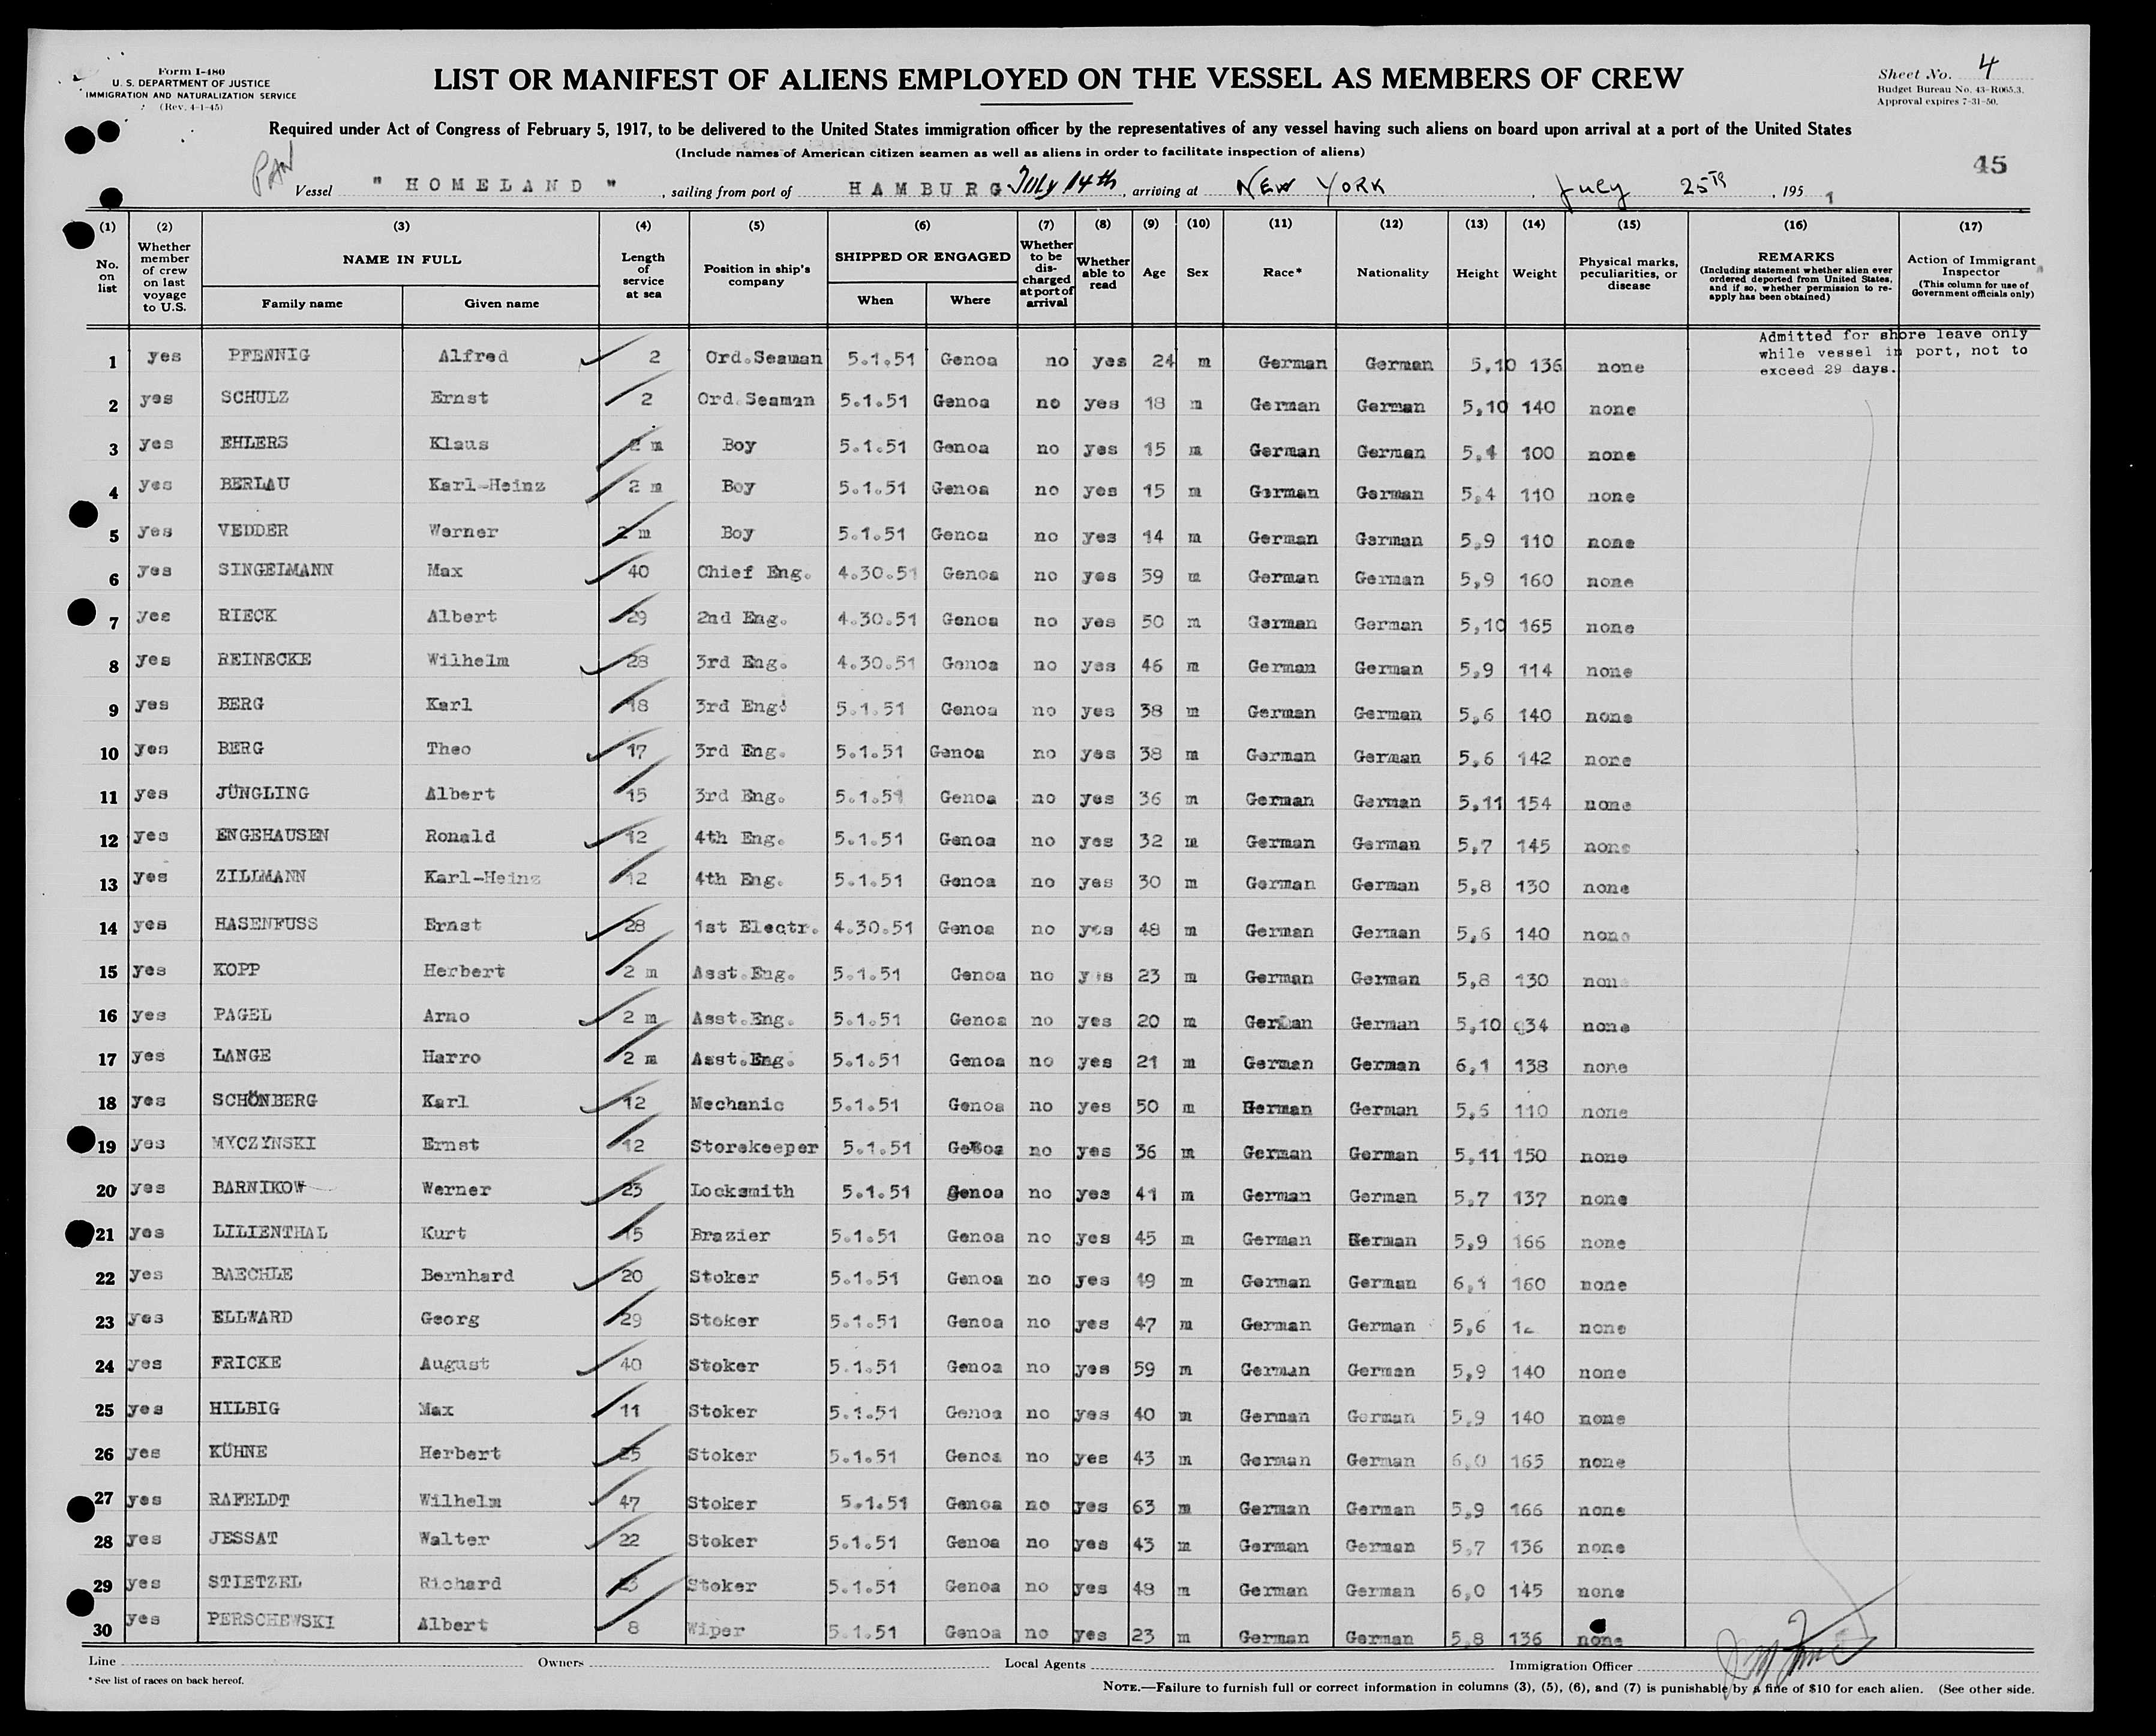 Form I-480
U. S. DEPARTMENT OF JUSTICE
IMMIGRATION AND NATURALIZATION SERVICE
(Rev. 4-1-45)
LIST OR MANIFEST OF ALIENS EMPLOYED ON THE VESSEL AS MEMBERS OF CREW
Sheet No. 4
Budget Bureau No. 43-R065.3.
Approval expires 7-31-50.
Required under Act of Congress of February 5, 1917, to be delivered to the United States immigration officer by the representatives of any vessel having such aliens on board upon arrival at a port of the United States
(Include names of American citizen seamen as well as aliens in order to facilitate inspection of aliens)
45
PAN
Vessel " HOMELAND ", sailing from port of HAMBURG July 14th, arriving at NEW YORK, July 25TH, 1951
(1) (2) (3) (4) (5) (6) (7) (8) (9) (10) (11) (12) (13) (14) (15) (16) (17)
No. on list
Whether member of crew on last voyage to U.S.
NAME IN FULL
Family name Given name
Length of service at sea
Position in ship's company
SHIPPED OR ENGAGED
When Where
Whether to be discharged at port of arrival
Whether able to read
Age
Sex
Race*
Nationality
Height
Weight
Physical marks, peculiarities, or disease
REMARKS
(Including statement whether alien ever ordered deported from United States, and if so, whether permission to reapply has been obtained)
Action of Immigrant Inspector
(This column for use of Government officials only)
Admitted for shore leave only
while vessel in port, not to
exceed 29 days.
1 yes PFENNIG Alfred 2 Ord.Seaman 5.1.51 Genoa no yes 24 m German German 5,10 136 none
2 yes SCHULZ Ernst 2 Ord.Seaman 5.1.51 Genoa no yes 18 m German German 5,10 140 none
3 yes EHLERS Klaus 2 m Boy 5.1.51 Genoa no yes 15 m German German 5,4 100 none
4 yes BERLAU Karl-Heinz 2 m Boy 5.1.51 Genoa no yes 15 m German German 5,4 110 none
5 yes VEDDER Werner 2 m Boy 5.1.51 Genoa no yes 14 m German German 5,9 110 none
6 yes SINGELMANN Max 40 Chief Eng. 4.30.51 Genoa no yes 59 m German German 5,9 160 none
7 yes RIECK Albert 29 2nd Eng. 4.30.51 Genoa no yes 50 m German German 5,10 165 none
8 yes REINECKE Wilhelm 28 3rd Eng. 4.30.51 Genoa no yes 46 m German German 5,9 114 none
9 yes BERG Karl 18 3rd Eng. 5.1.51 Genoa no yes 38 m German German 5,6 140 none
10 yes BERG Theo 17 3rd Eng. 5.1.51 Genoa no yes 38 m German German 5,6 142 none
11 yes JÜNGLING Albert 15 3rd Eng. 5.1.51 Genoa no yes 36 m German German 5,11 154 none
12 yes ENGEHAUSEN Ronald 12 4th Eng. 5.1.51 Genoa no yes 32 m German German 5,7 145 none
13 yes ZILLMANN Karl-Heinz 12 4th Eng. 5.1.51 Genoa no yes 30 m German German 5,8 130 none
14 yes HASENFUSS Ernst 28 1st Electr. 4.30.51 Genoa no yes 48 m German German 5,6 140 none
15 yes KOPP Herbert 2 m Asst.Eng. 5.1.51 Genoa no yes 23 m German German 5,8 130 none
16 yes PAGEL Arno 2 m Asst.Eng. 5.1.51 Genoa no yes 20 m German German 5,10 134 none
17 yes LANGE Harro 2 m Asst.Eng. 5.1.51 Genoa no yes 21 m German German 6,1 138 none
18 yes SCHÖNBERG Karl 12 Mechanic 5.1.51 Genoa no yes 50 m German German 5,6 110 none
19 yes MYCZYNSKI Ernst 12 Storekeeper 5.1.51 Genoa no yes 36 m German German 5,11 150 none
20 yes BARNIKOW Werner 23 Locksmith 5.1.51 Genoa no yes 41 m German German 5,7 137 none
21 yes LILIENTHAL Kurt 15 Brazier 5.1.51 Genoa no yes 45 m German German 5,9 166 none
22 yes BAECHLE Bernhard 20 Stoker 5.1.51 Genoa no yes 49 m German German 6,1 160 none
23 yes ELLWARD Georg 29 Stoker 5.1.51 Genoa no yes 47 m German German 5,6 none
24 yes FRICKE August 40 Stoker 5.1.51 Genoa no yes 59 m German German 5,9 140 none
25 yes HILBIG Max 11 Stoker 5.1.51 Genoa no yes 40 m German German 5,9 140 none
26 yes KÜHNE Herbert 25 Stoker 5.1.51 Genoa no yes 43 m German German 6,0 165 none
27 yes RAFELDT Wilhelm 47 Stoker 5.1.51 Genoa no yes 63 m German German 5,9 166 none
28 yes JESSAT Walter 22 Stoker 5.1.51 Genoa no yes 43 m German German 5,7 136 none
29 yes STIETZEL Richard 23 Stoker 5.1.51 Genoa no yes 48 m German German 6,0 145 none
30 yes PERSCHEWSKI Albert 8 Wiper 5.1.51 Genoa no yes 23 m German German 5,8 136 none
Line Owners Local Agents Immigration Officer
*See list of races on back hereof.
NOTE.—Failure to furnish full or correct information in columns (3), (5), (6), and (7) is punishable by a fine of $10 for each alien. (See other side.